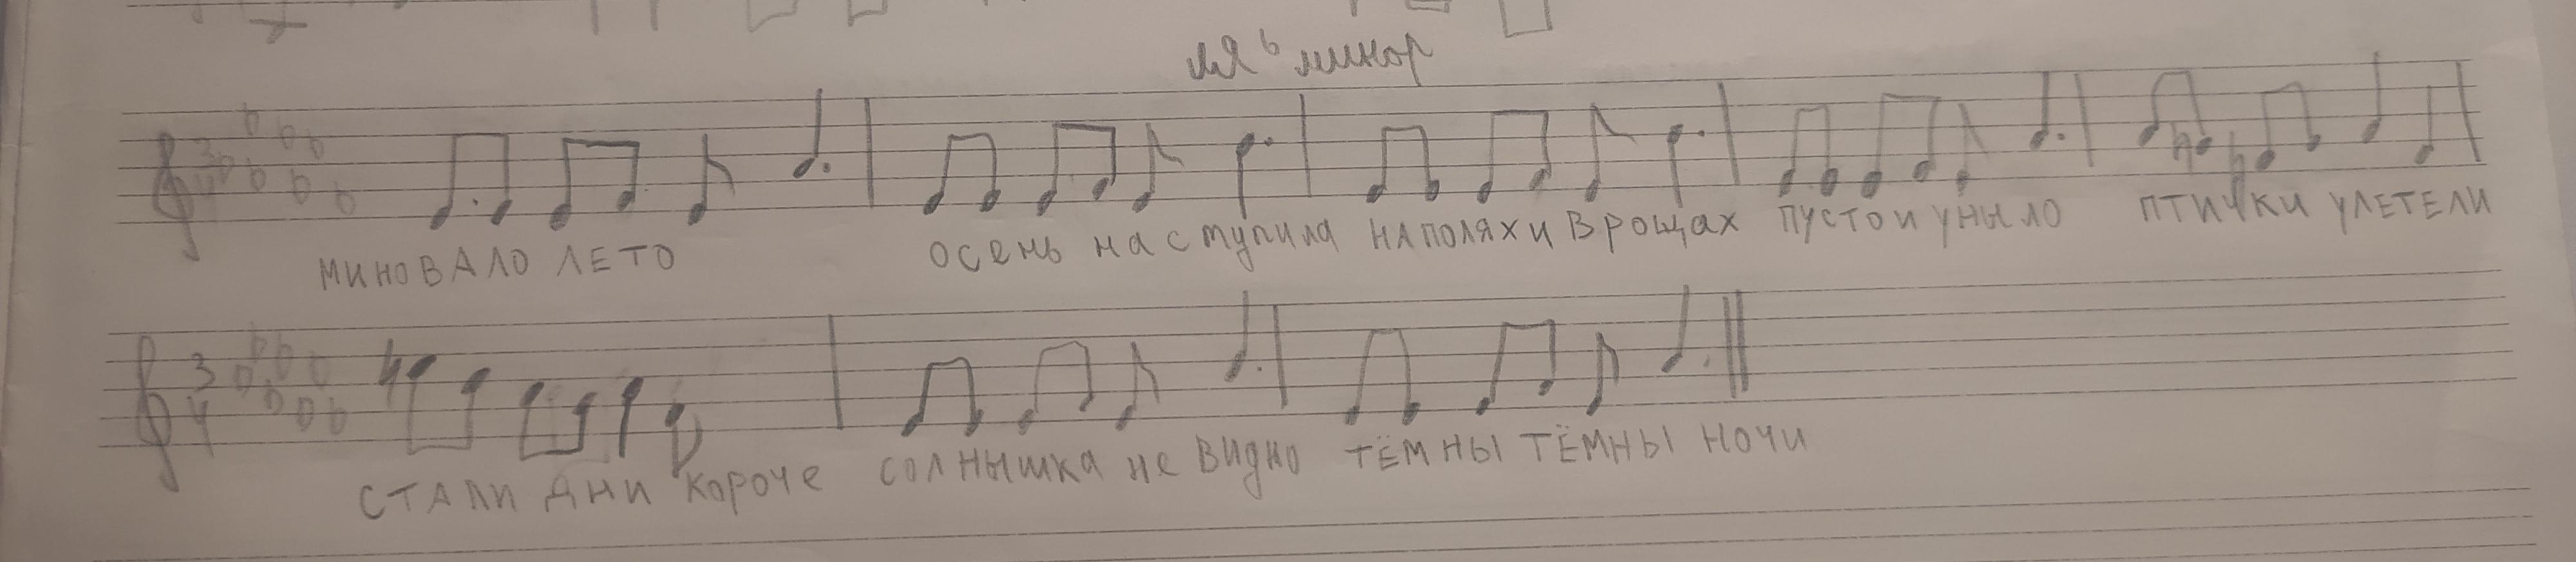 ля b минор
3
4
МИНОВАЛО ЛЕТО осень наступила НА ПОЛЯХ И В рощах ПУСТО И УНЫЛО ПТИЧКИ УЛЕТЕЛИ
3
4
СТАЛИ ДНИ короче СОЛНЫШКА не видно ТЁМНЫ ТЁМНЫ НОЧИ